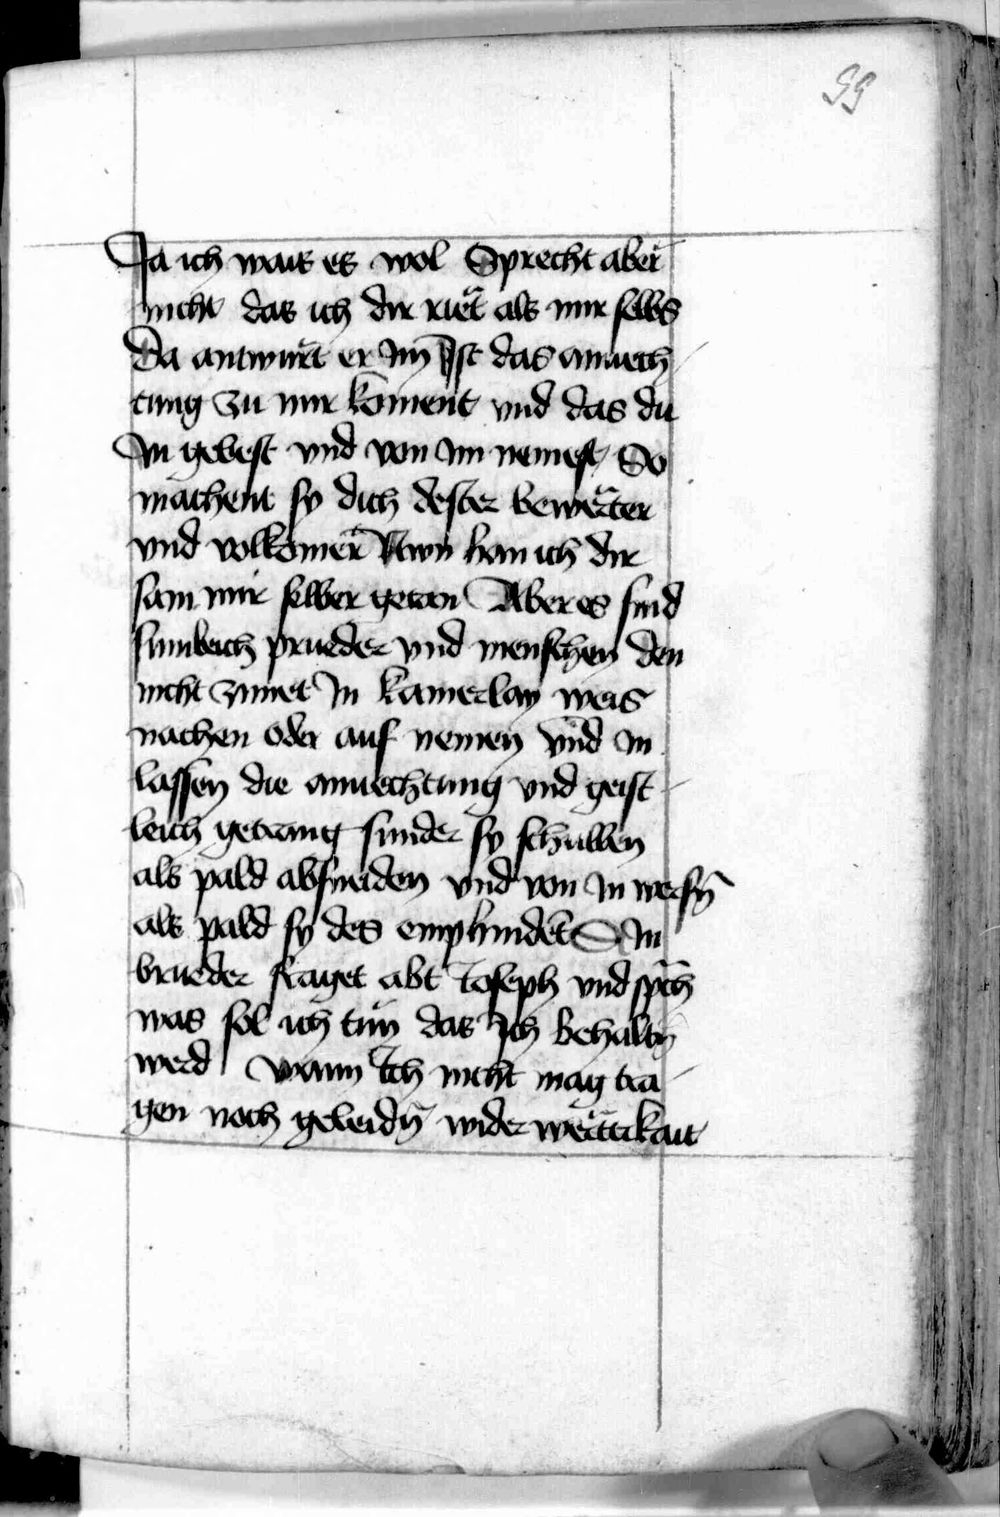 99
Ja ich wais es wol Sprecht aber
nicht das ich dir riet als mir selbs
Da antwurt er im Ist das anuech
tung zu mir koment vnd das du
In gebest vnd von im nemest So
machent sy dich dester bewerter
vnd volkomer Nwn han ich dir
sam mir selber getan Aber es sind
sumleich prueder vnd menschen den
nicht zimet In kainerlay weis
nachen oder auf nemen vnd in
lassen die anuechtung vnd geist
leich getrang sunder sy schullen
als pald absneiden vnd von In werfn̄
als pald sy des emphindet Ain
brueder fraget abt Joseph vnd sprͣch
was sol ich tun das Ich behaltn̄
werd Wann Ich nicht mag tra
gen noch geleidn̄ wider werttikait